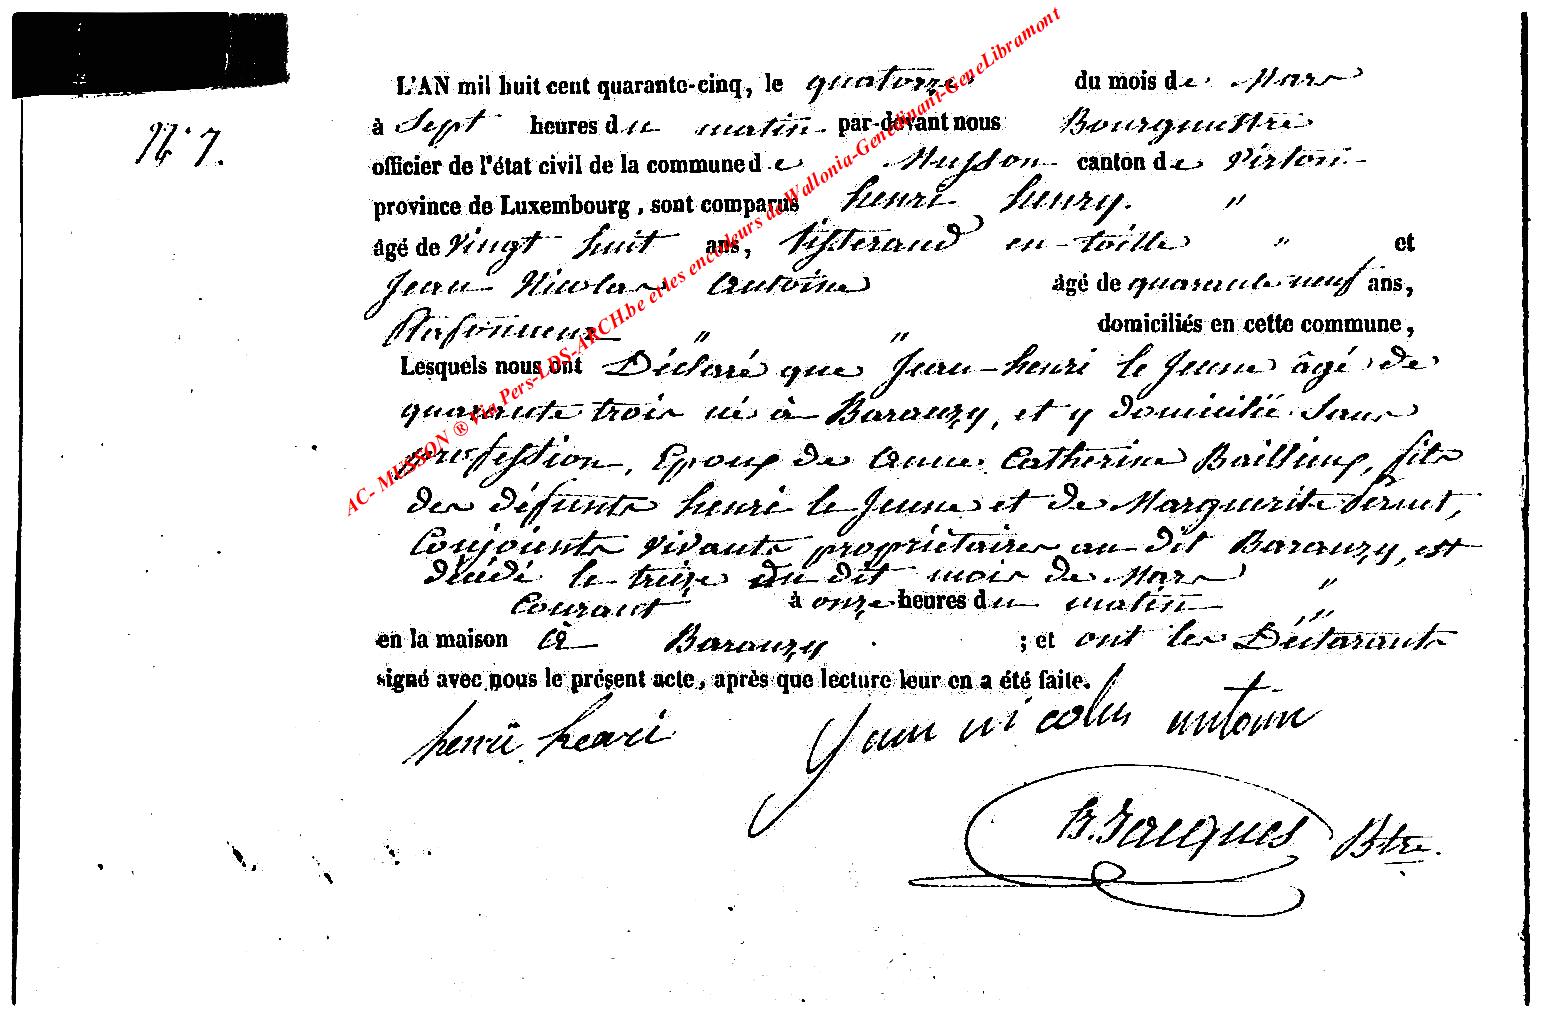 L'AN mil huit cent quarante-cinq, le quatorze du mois de Mars
N° 7.
à Sept heures du matin par-devant nous Bourguestre
officier de l'état civil de la commune de Musson canton de Virton
province de Luxembourg, sont comparus henri henry. "
âgé de Vingt huit ans, tisserand en toille " et
Jean Nicolas Antoine âgé de quarante neuf ans,
Plafonneur " " domiciliés en cette commune,
Lesquels nous ont Déclaré que Jean-henri le Jeune âgé de
quarante trois né à Baranzy, et y domicilié Sans
profession, Epoux de Anne Catherine Baillieux, fils
des défunts henri le Jeune et de Marguerite
Conjoints vivants propriétaires au dit Baranzy, est
décédé le treize du dit mois de Mars "
Courant à onze heures du matin "
en la maison à Baranzy ; et ont les Déclarants
signé avec nous le présent acte, après que lecture leur en a été faite.
henri henri Jean nicolas antoine
H. Jacques Btre.
AC- MUSSON ® Via Pers-LDS-ARCH.be et les encodeurs de Wallonia-Genedinant-GeneLibramont